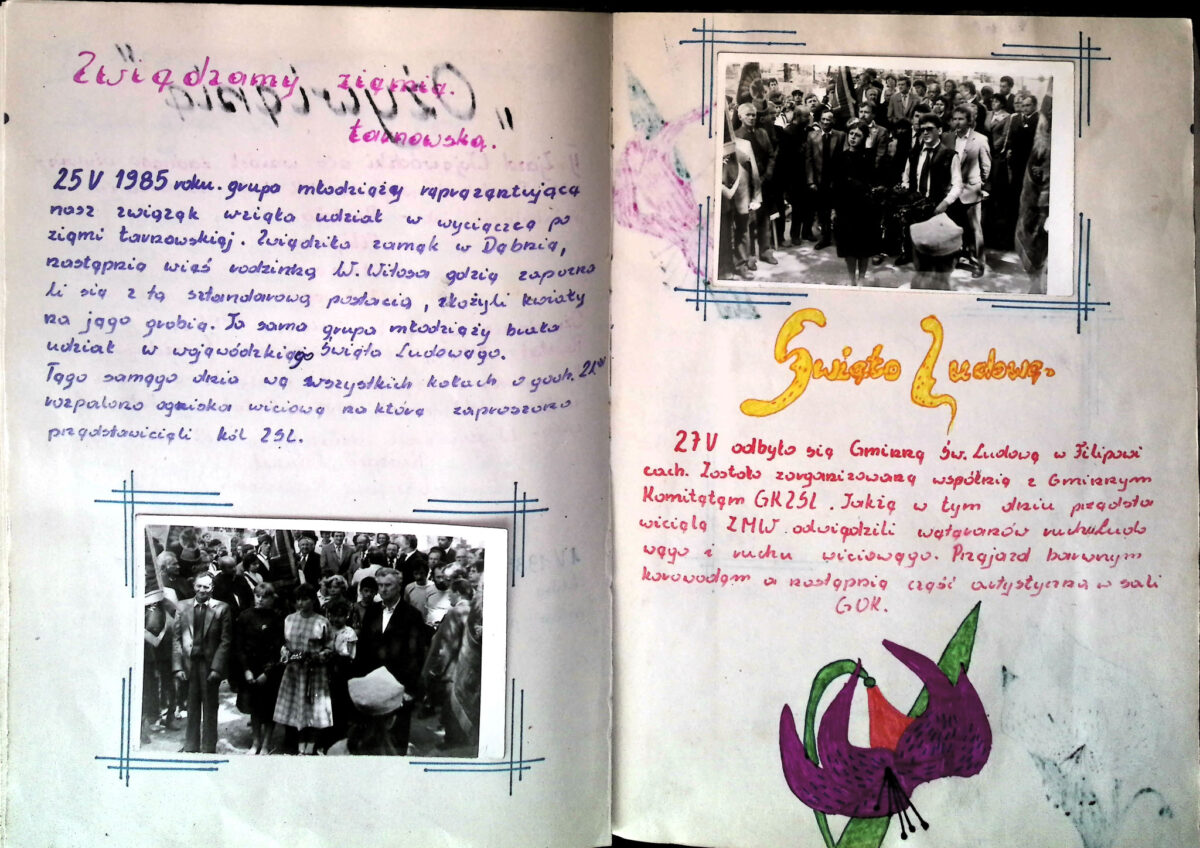 Zwiedzamy ziemię
tarnowską.
25 V 1985 roku. grupa młodzieży reprezentująca
nasz związek wzięła udział w wycieczce po
ziemi tarnowskiej. Zwiedziła zamek w Dębnie,
następnie wieś rodzinką W. Witosa gdzie zapozna
li się z tą sztandarową postacią, złożyli kwiaty
na jego grobie. Ta sama grupa młodzieży brała
udział w wojewódzkiego Święta Ludowego.
Tego samego dnia we wszystkich kołach o godz. 21⁰⁰
rozpalono ogniska wiciowe na które zaproszono
przedstawicieli kół ZSL.
Święto Ludowe.
27 V odbyło się Gminne Św. Ludowe w Filipowi
cach. Zostało zorganizowane wspólnie z Gminnym
Komitetem GKZSL. Także w tym dniu przedsta
wiciele ZMW odwiedzili weteranów ruchu Ludo
wego i ruchu wiciowego. Przejazd barwnym
korowodem a następnie część artystyczna w sali
GOK.